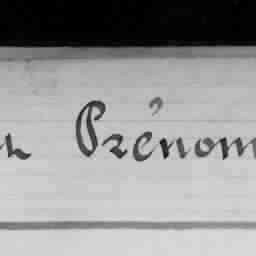 Prénom